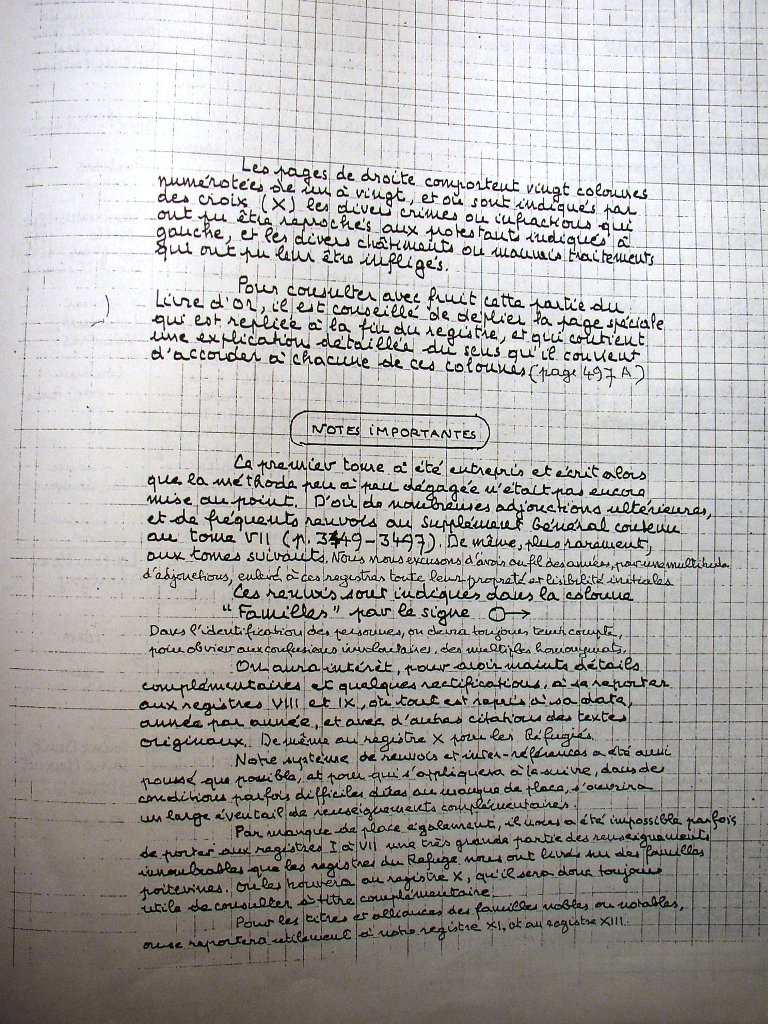 Les pages de droite comportent vingt colonnes
numérotées de un à vingt, et où sont indiqués par
des croix (X) les divers crimes ou infractions qui
ont pu être reprochés aux protestants indiqués à
gauche, et les divers châtiments ou mauvais traitements
qui ont pu leur être infligés.
Pour consulter avec fruit cette partie du
Livre d'Or, il est conseillé de déplier la page spéciale
qui est repliée à la fin du registre, et qui contient
une explication détaillée du sens qu'il convient
d'accorder à chacune de ces colonnes (page 497 A)
NOTES IMPORTANTES
Ce premier tome a été entrepris et écrit alors
que la méthode peu à peu dégagée n'était pas encore
mise au point. D'où de nombreuses adjonctions ultérieures,
et de fréquents renvois au Supplément Général contenu
au tome VII (p. 3449-3497). De même, plus rarement,
aux tomes suivants. Nous nous excusons d'avoir au fil des années, par une multitude
d'adjonctions, enlevé à ces registres toute leur propreté et lisibilité initiales
Ces renvois sont indiqués dans la colonne
"Familles" par le signe O→
Dans l'identification des personnes, on devra toujours tenir compte,
pour obvier aux confusions involontaires, des multiples homonymats.
On aura intérêt, pour avoir maints détails
complémentaires et quelques rectifications, à se reporter
aux registres VIII et IX, où tout est repris à sa date,
année par année, et avec d'autres citations des textes
originaux. De même au registre X pour les Réfugiés.
Notre système de renvois et inter-références a été aussi
poussé que possible, et pour qui s'appliquera à le suivre, dans des
conditions parfois difficiles dûes au manque de place, s'ouvrira
un large éventail de renseignements complémentaires.
Par manque de place également, il nous a été impossible parfois
de porter aux registres I à VII une très grande partie des renseignements
innombrables que les registres du Refuge nous ont livrés sur des familles
poitevines. On les trouvera au registre X, qu'il sera donc toujours
utile de consulter à titre complémentaire.
Pour les titres et alliances des familles nobles ou notables,
on se reportera utilement à notre registre XI, et au registre XIII.